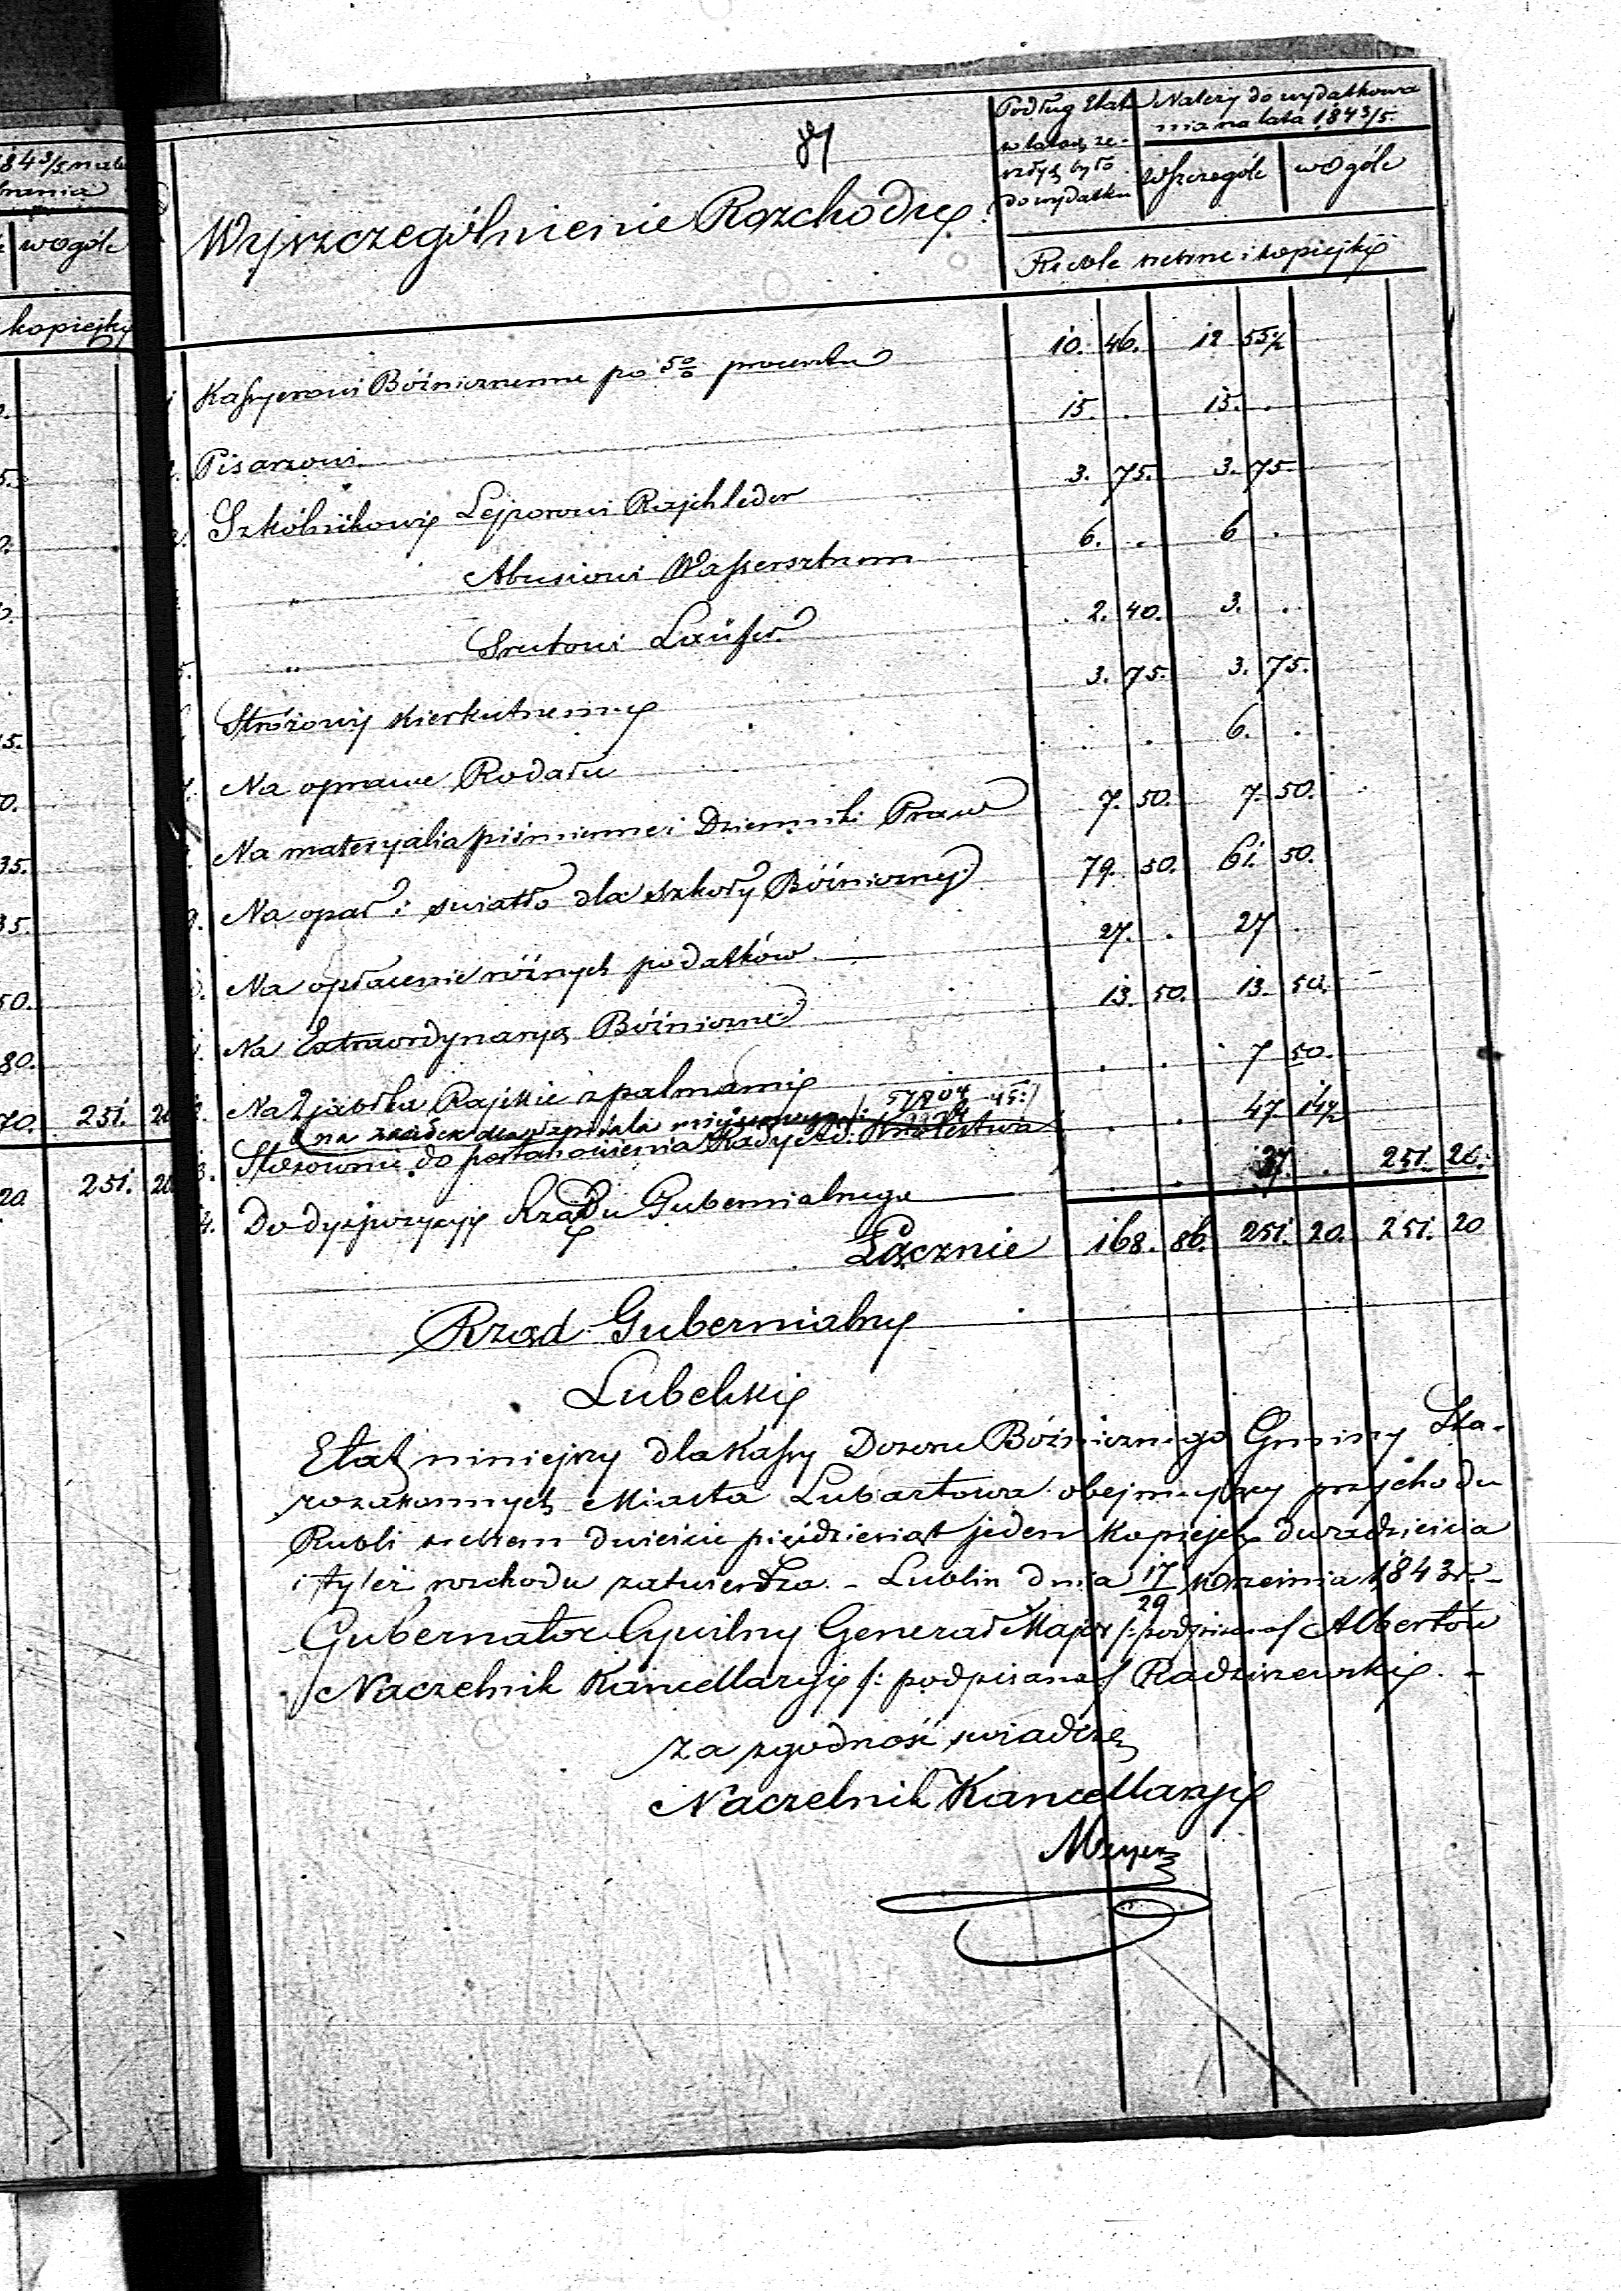 1843/5 nale
brania
wogóle
kopiejky
5.
15.
50.
35.
35.
50.
80.
70. 251. 20
20 251. 20
87
Wyszczególnienie Rozchodu
Podług Etatu
w latach ze-
szłych było
do wydatku
Należy do wydatkowa
nia na lata 1843/5
wszczególe
wogóle
Ruble srebrne i kopiejki
Kassyerowi Bóżnicznemu po 5% procentu 10. 46. 12 55½
Pisarzowi 15. . 15. .
Szkólnikowi Lejzorowi Rajchleder 3. 75. 3. 75.
" Abusiowi Wassersztrum 6. . 6 .
5. " Srulowi Laüfer 2. 40. 3. .
Stróżowi kierkutnemu 3. 75. 3. 75.
7. Na oprawe Rodału . . 6. .
Na materyalia piśmienne i Dzienniki Praw 7. 50. 7. 50.
9. Na opał i swiatło dla szkoły Bóżniczney 79. 50. 61. 50.
Na opłacenie różnych podatków 27. . 27 .
Na Extraordynarya Bóżniczne 13. 50. 13. 50.
Na Zjabłka Rajskie z palmami . . 7 50.
na zasiłek dla szpitala miejscowego
3. Stosownie do postanowienia Rady Ad: Królestwa . . 47. 14½
4. Do dyspozycyi Rządu Gubernialnego . . 37. . 251. 20.
Łącznie 168. 86. 251. 20. 251. 20
Rząd Gubernialny
Lubelski
Etat niniejszy dla Kassy Dozoru Bóżnicznego Gminy Sta-
rozakonnych Miasta Lubartowa obejmujący przychodu
Rubli srebrem dwieście pięćdziesiąt jeden kopiejek dwadzieścia
i tyleż rozchodu zatwierdza. – Lublin dnia 17/29 Września 1843 r. –
Gubernator Cywilny Generał Major /: podpisano / Albertów
Naczelnik Kancellaryi /: podpisano / Radziszewski. –
Za zgodność świadczę
Naczelnik Kancellaryi
Meyer